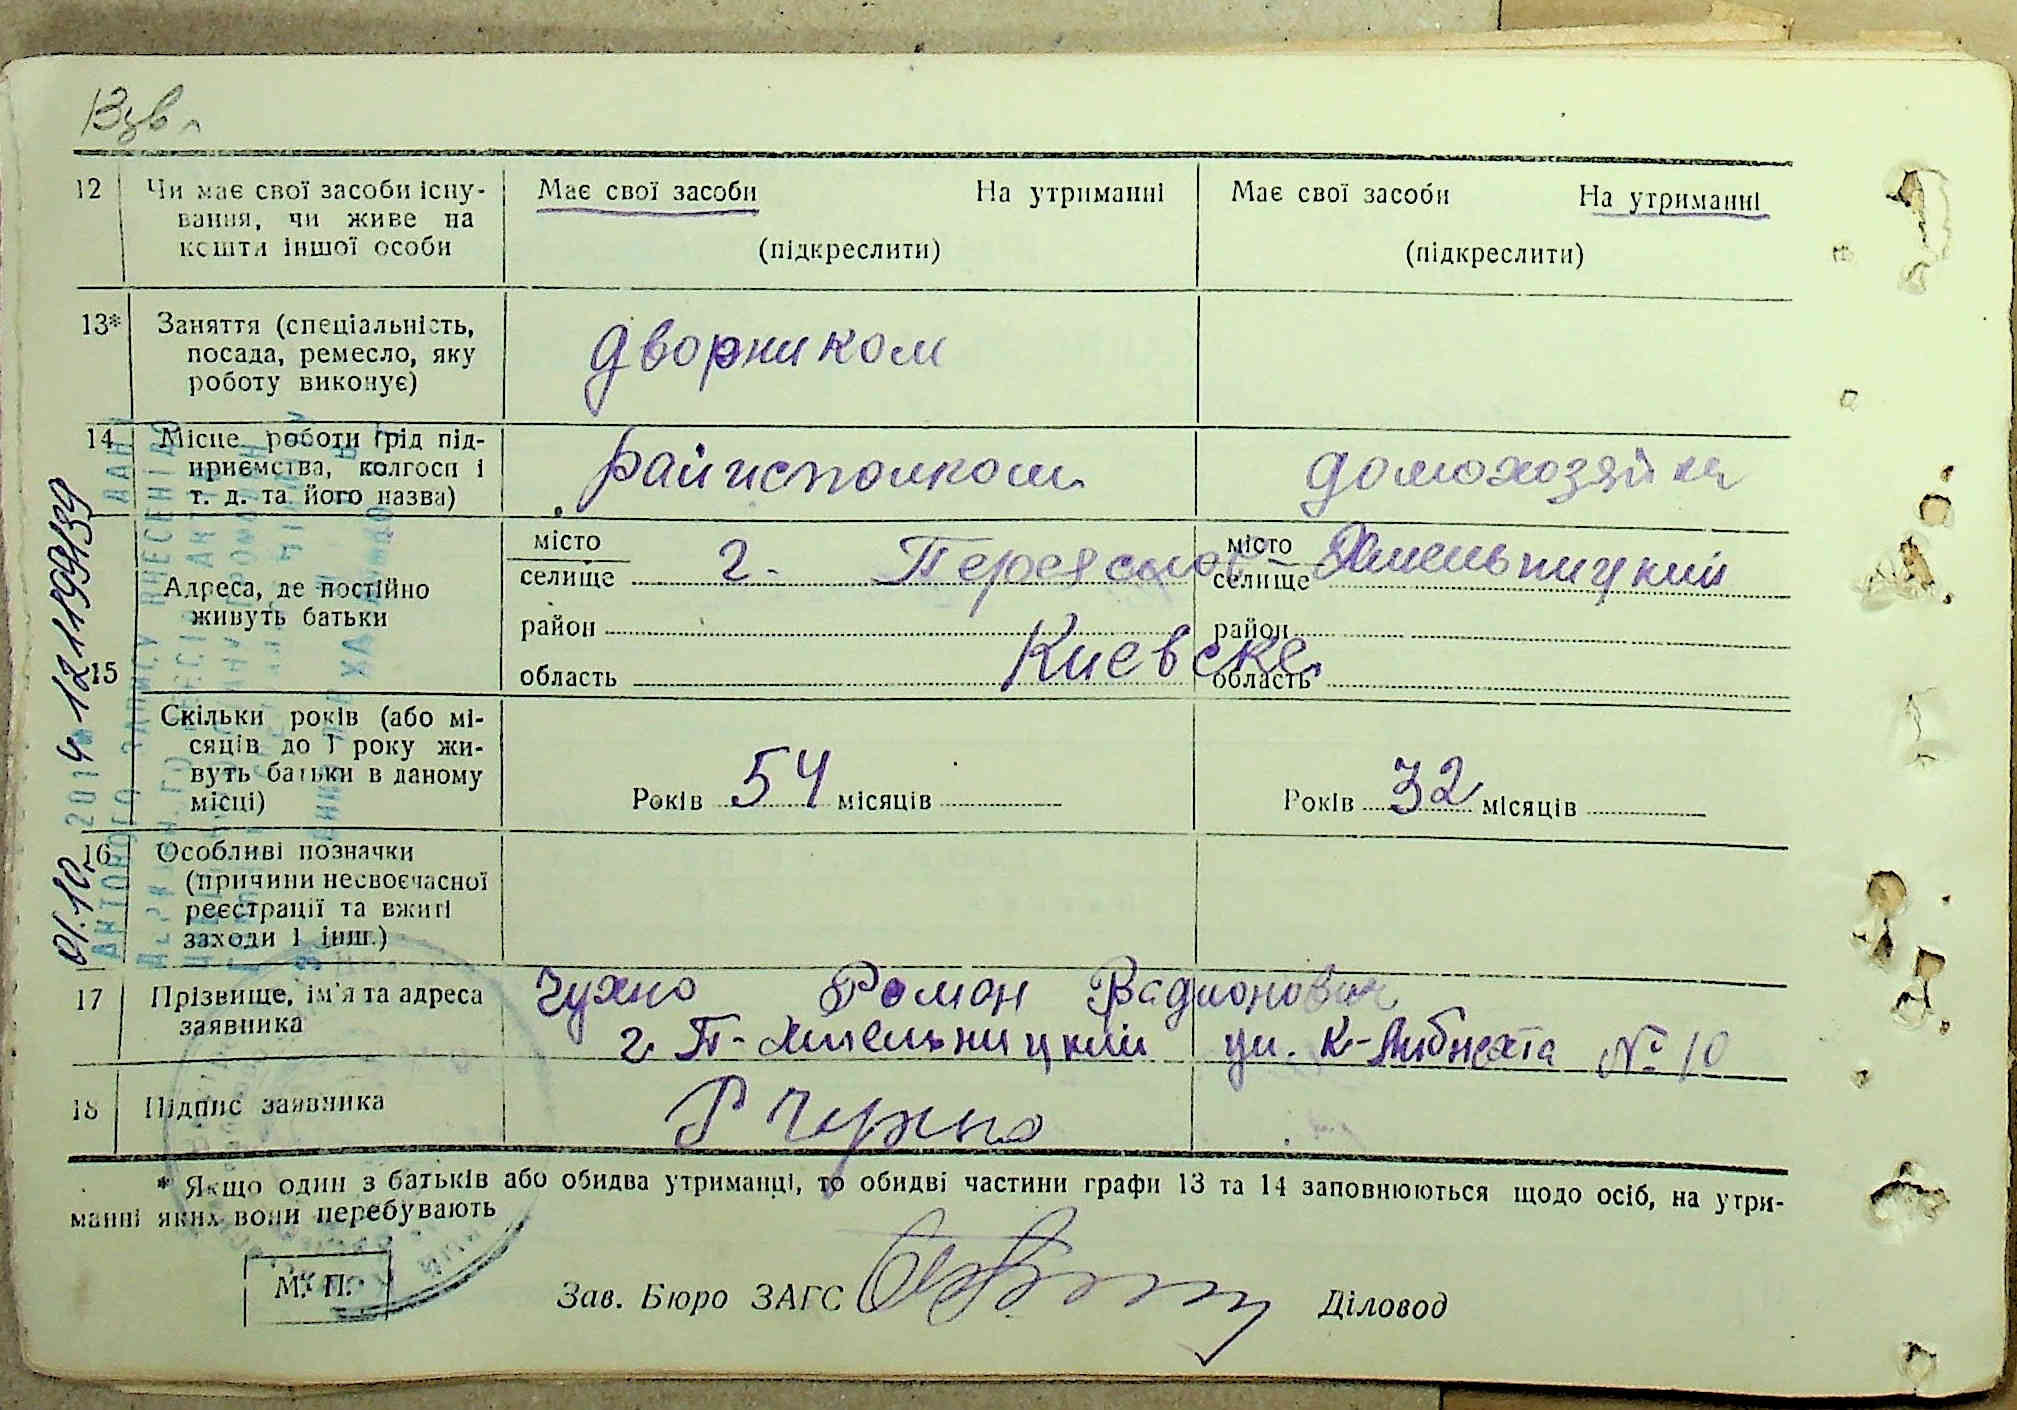 12 Чи має свої засоби існу- Має свої засоби На утриманні Має свої засоби На утриманні
вання, чи живе на
кошти іншої особи (підкреслити) (підкреслити)
13* Заняття (спеціальність,
посада, ремесло, яку дворником
роботу виконує)
14 Місце роботи (рід під-
приємства, колгосп і райисполком домохозяйка
т. д. та його назва)
місто місто
селище г. Переяслов селище Хмельницкий
Адреса, де постійно
живуть батьки район район
15 область Киевске область
Скільки років (або мі-
сяців до 1 року жи-
вуть батьки в даному
місці) Років 54 місяців Років 32 місяців
16 Особливі позначки
(причини несвоєчасної
реєстрації та вжиті
заходи і інш.)
17 Прізвище, ім'я та адреса Чухно Роман Радионович
заявника г. П-Хмельницкий ул. К-Либнехта № 10
18 Підпис заявника Р Чухно
* Якщо один з батьків або обидва утриманці, то обидві частини графи 13 та 14 заповнюються щодо осіб, на утри-
манні яких вони перебувають
М. П.
Зав. Бюро ЗАГС Діловод
01.10. 2014 12111994139